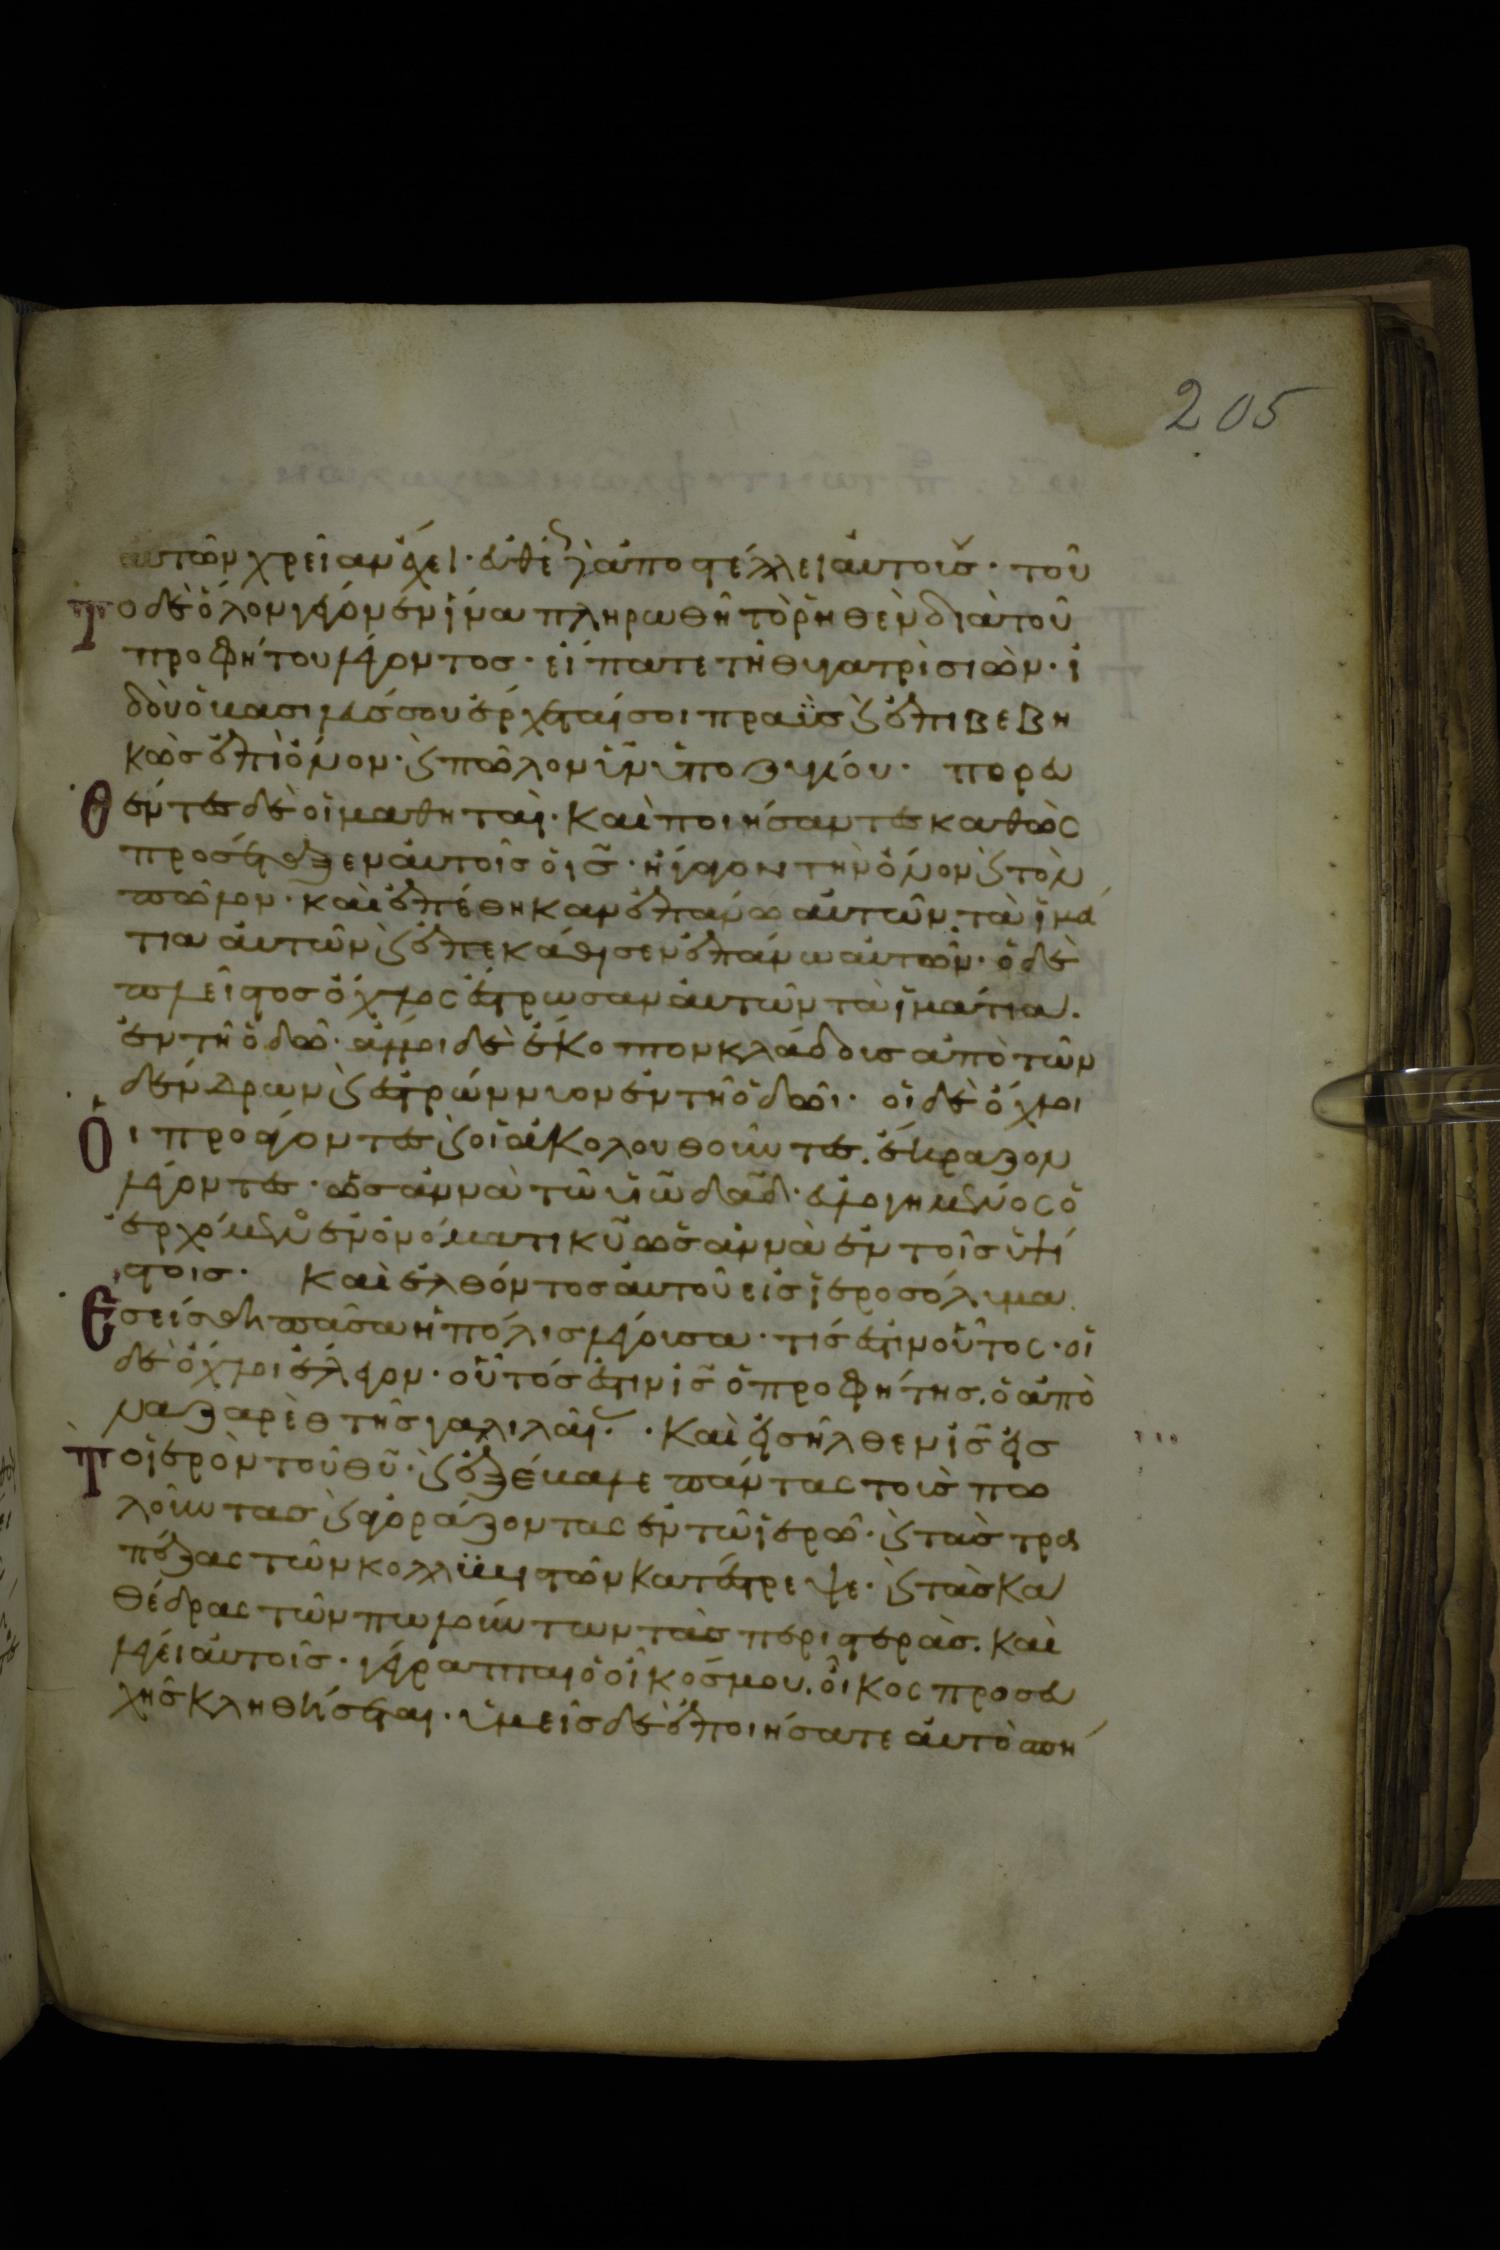 205
αυτῶν χρείαν ἔχει· εὐθέως ἀποστέλλει αὐτούς· τοῦ
το δὲ ὅλον γέγονεν ἵνα πληρωθῆ τὸ ῥηθὲν διὰ τοῦ
προφήτου λέγοντος· εἴπατε τῆ θυγατρὶ σιών· ἰ
δοὺ ὁ βασιλεύς σου ἔρχεταί σοι πραῢς ϗ ἐπιβεβη
κὼς ἐπὶ ὄνον· ϗ πῶλον ὑὸν ὑποζυγίου· πορευ
θέντες δὲ οἱ μαθηταὶ· καὶ ποιήσαντες καθὼς
προσέταξεν αὐτοῖς ὁ ις̄· ἤγαγον τὴν ὄνον ϗ τὸν
πῶλον· καὶ ἐπέθηκαν ἐπάνω αὐτῶν τὰ ἱμά
τια αὐτῶν ϗ ἐπεκάθισεν ἐπάνω αὐτῶν· ὁ δὲ
πλεῖστος ὄχλος ἔστρωσαν αὐτῶν τὰ ἱμάτια.
ἐν τῆ ὁδῶ· ἄλλοι δὲ ἔκοπτον κλάδους ἀπὸ τῶν
δένδρων ϗ ἐστρώννυον ἐν τῆ ὁδῶι· οἱ δὲ ὄχλοι
Οἱ προάγοντες ϗ οἱ ἀκολουθοῦντες. ἔκραζον
λέγοντες· ὡσαννὰ τῶ υἱῶ δαδ̄· εὐλογημένος ὁ
ἐρχόμενος ἐν ὀνόματι κῡ ὡσαννὰ ἐν τοῖς ὑψί
στοις· Καὶ ἐλθόντος αὐτοῦ εἰς ἱεροσόλυμα
Ἐσείσθη πᾶσα ἡ πόλις λέγουσα· τίς ἐστιν οὗτος· οἱ
δὲ ὄχλοι ἔλεγον· οὗτός ἐστιν ις̄ ὁ προφήτης. ὁ ἀπὸ
ναζαρὲθ τῆς γαλιλαίας· Καὶ εἰσῆλθεν ις̄ εἰς
Τὸ ἱερὸν τοῦ θῡ· ϗ ἐξέβαλε πάντας τοὺς πω
λοῦντας ϗ ἀγοράζοντας ἐν τῶ ἱερῶ· ϗ τὰς τρα
πέζας τῶν κολλυβιστῶν κατέστρεψε· ϗ τὰς κα
θέδρας τῶν πωλούντων τὰς περιστεράς. Καὶ
λέγει αὐτοῖς· γέγραπται ὁ οἶκός μου. οἶκος προσευ
χῆς κληθήσεται· ὑμεῖς δὲ ἐποιήσατε αὐτὸ σπή